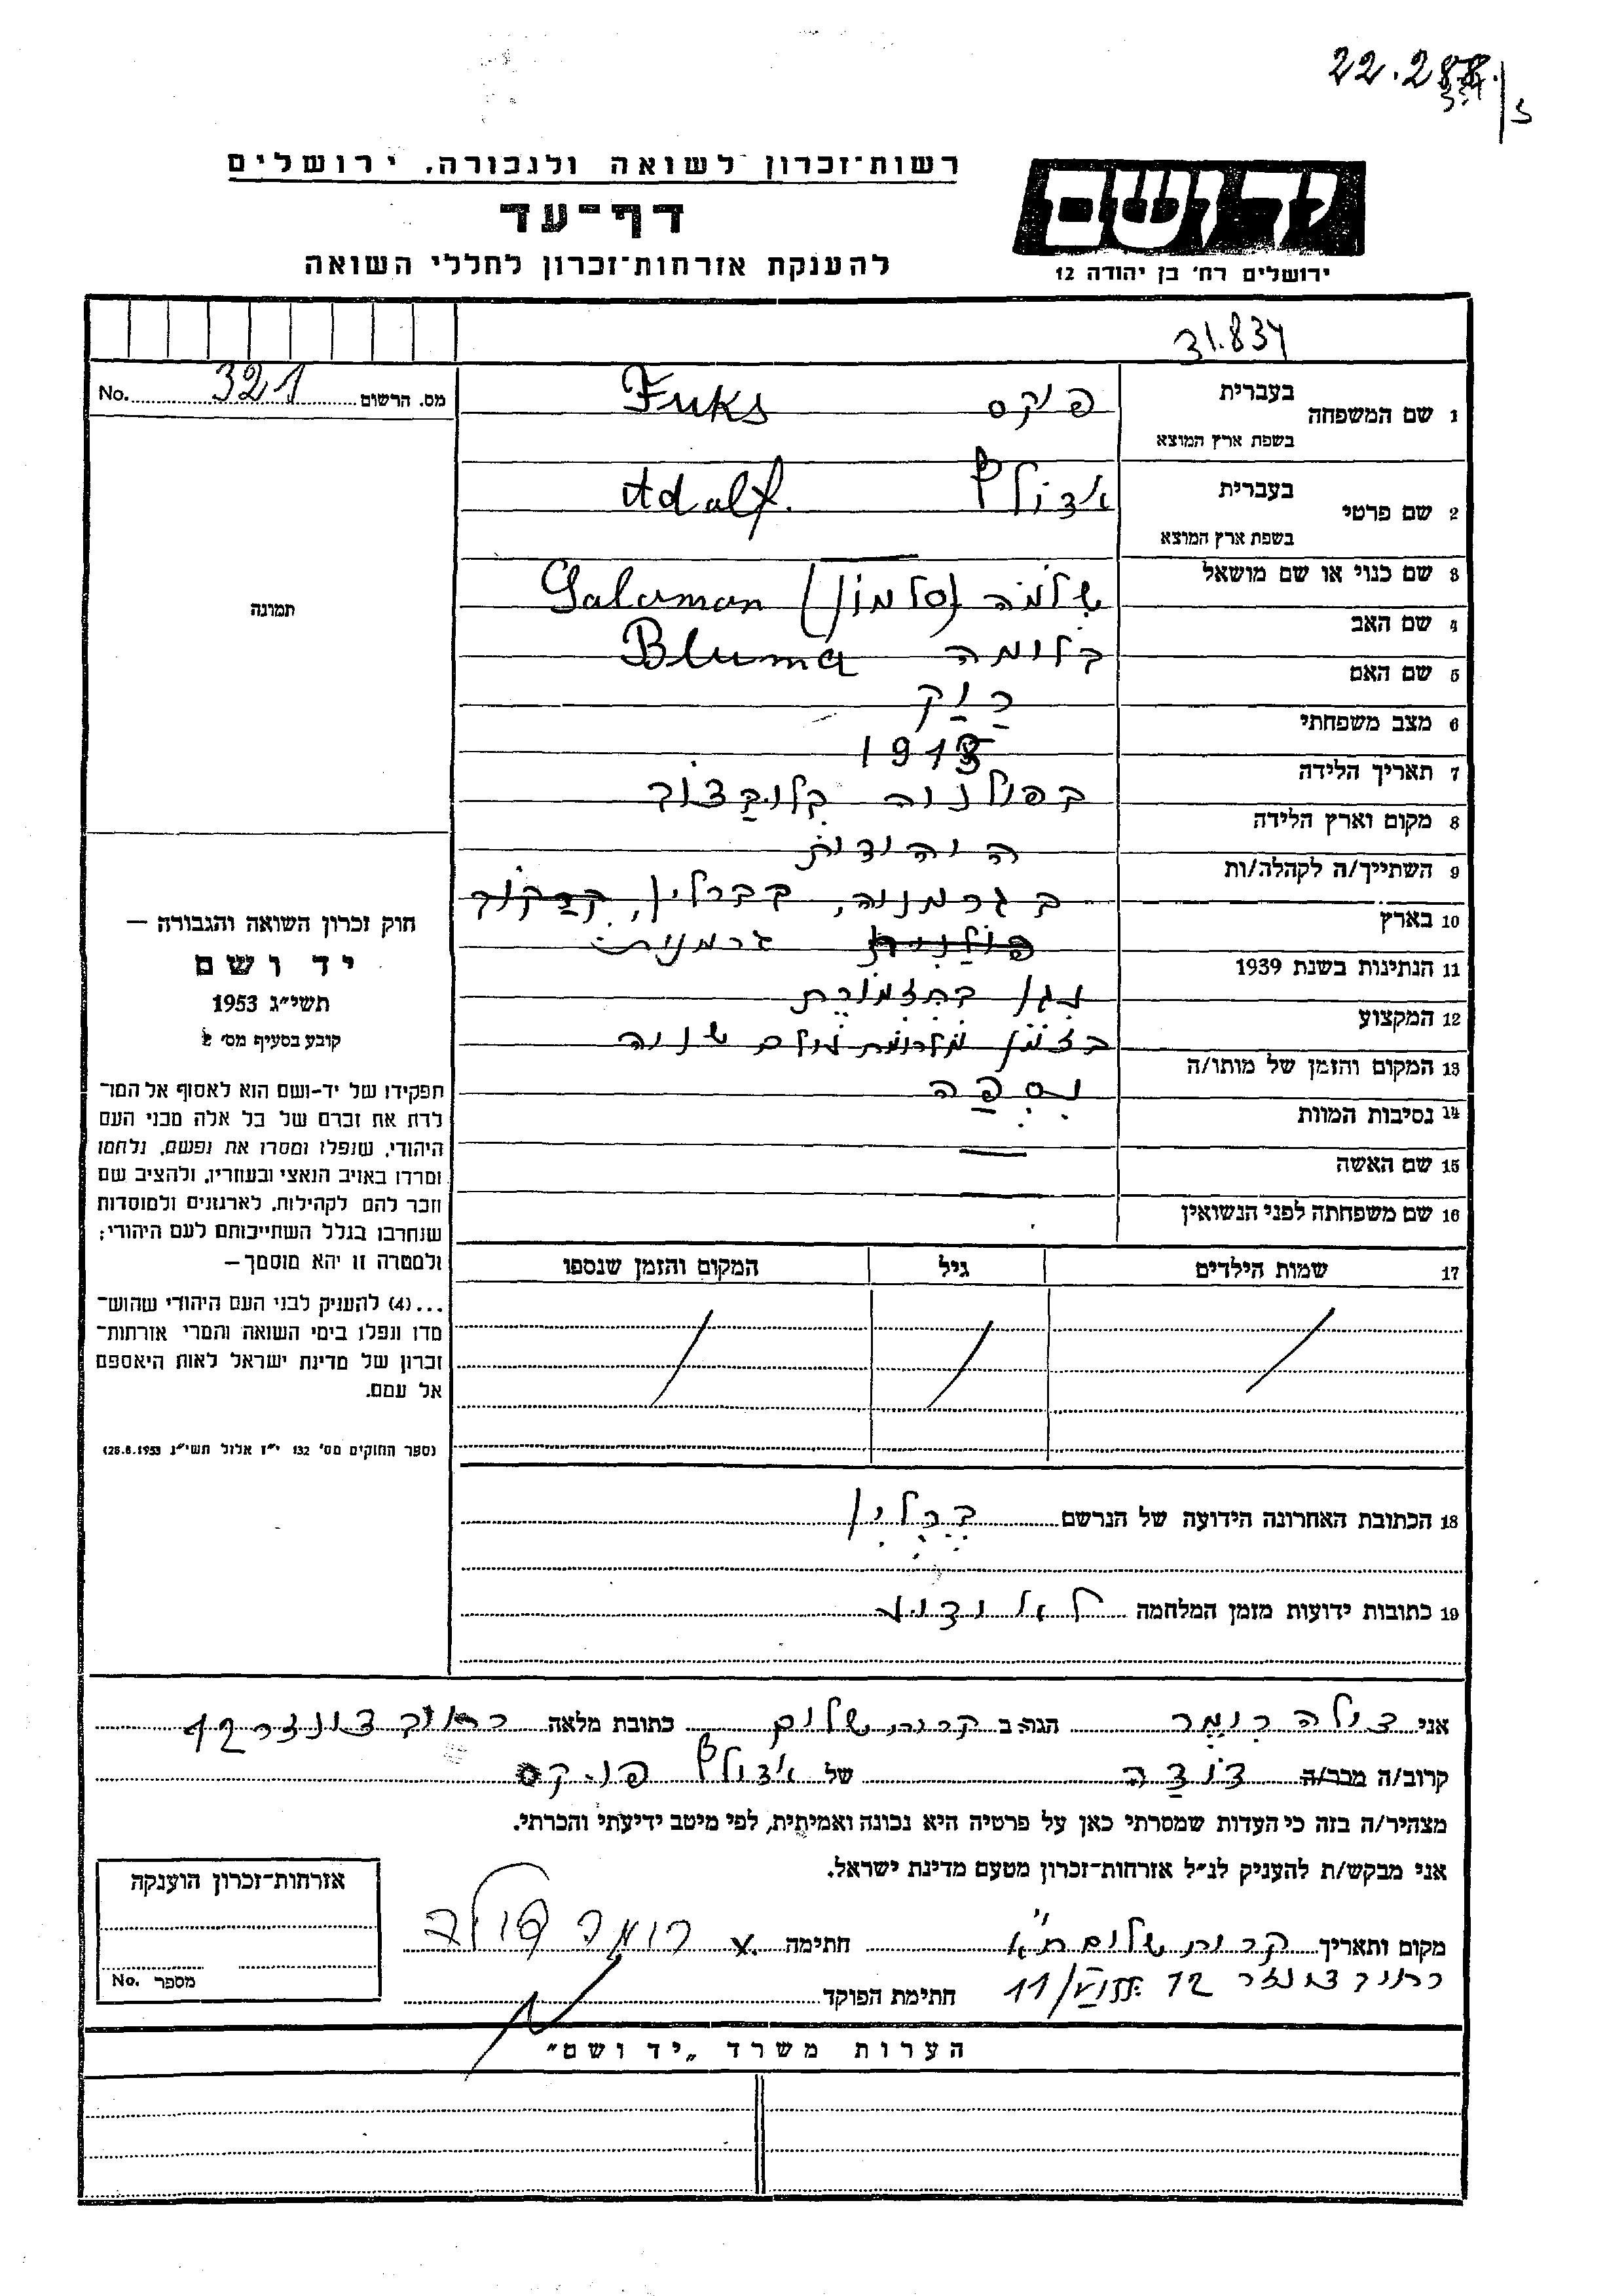 22.288.
רשות־זכרון לשואה ולגבורה, ירושלים
דף־עד
להענקת אזרחות־זכרון לחללי השואה
יד ושם
ירושלים רח' בן יהודה 12
31.834
מס. הרשום 321 No.
1 שם המשפחה בעברית פוקס Fuks
בשפת ארץ המוצא
2 שם פרטי בעברית אדולף Adolf.
בשפת ארץ המוצא
3 שם כנוי או שם מושאל —
4 שם האב שלמה (סלמון) Salaman
5 שם האם בלומה Bluma
6 מצב משפחתי רוק
7 תאריך הלידה 1913
8 מקום וארץ הלידה בפולניה
9 השתייך/ה לקהלה/ות היהודית
10 בארץ בגרמניה, בברלין,
11 הנתינות בשנת 1939 פולנית גרמנית
12 המקצוע נגן בתזמורת
13 המקום והזמן של מותו/ה בזמן מלחמת עולם שניה
14 נסיבות המוות נספה
15 שם האשה —
16 שם משפחתה לפני הנשואין
17 שמות הילדים גיל המקום והזמן שנספו
18 הכתובת האחרונה הידועה של הנרשם ברלין
19 כתובות ידועות מזמן המלחמה לא ידוע
תמונה
חוק זכרון השואה והגבורה —
יד ושם
תשי״ג 1953
קובע בסעיף מס' 2
תפקידו של יד-ושם הוא לאסוף אל המו־
לדת את זכרם של כל אלה מבני העם
היהודי, שנפלו ומסרו את נפשם, נלחמו
ומרדו באויב הנאצי ובעוזריו, ולהציב שם
וזכר להם לקהילות, לארגונים ולמוסדות
שנחרבו בגלל השתייכותם לעם היהודי;
ולמטרה זו יהא מוסמך—
...(4) להעניק לבני העם היהודי שהוש־
מדו ונפלו בימי השואה והמרי אזרחות־
זכרון של מדינת ישראל לאות היאספם
אל עמם.
(ספר החוקים מס' 132 י״ז אלול תשי״ג 28.8.1953)
אני צילה רומר הגר ב קרית שלום כתובת מלאה
קרוב/ה מכר/ה דודה של אדולף פוקס
מצהיר/ה בזה כי העדות שמסרתי כאן על פרטיה היא נכונה ואמיתית, לפי מיטב ידיעתי והכרתי.
אני מבקש/ת להעניק לנ״ל אזרחות-זכרון מטעם מדינת ישראל.
מקום ותאריך קרית שלום ת״א חתימה x רומר צילה
12 11/
חתימת הפוקד
אזרחות-זכרון הוענקה
מספר No.
הערות משרד „יד ושם״